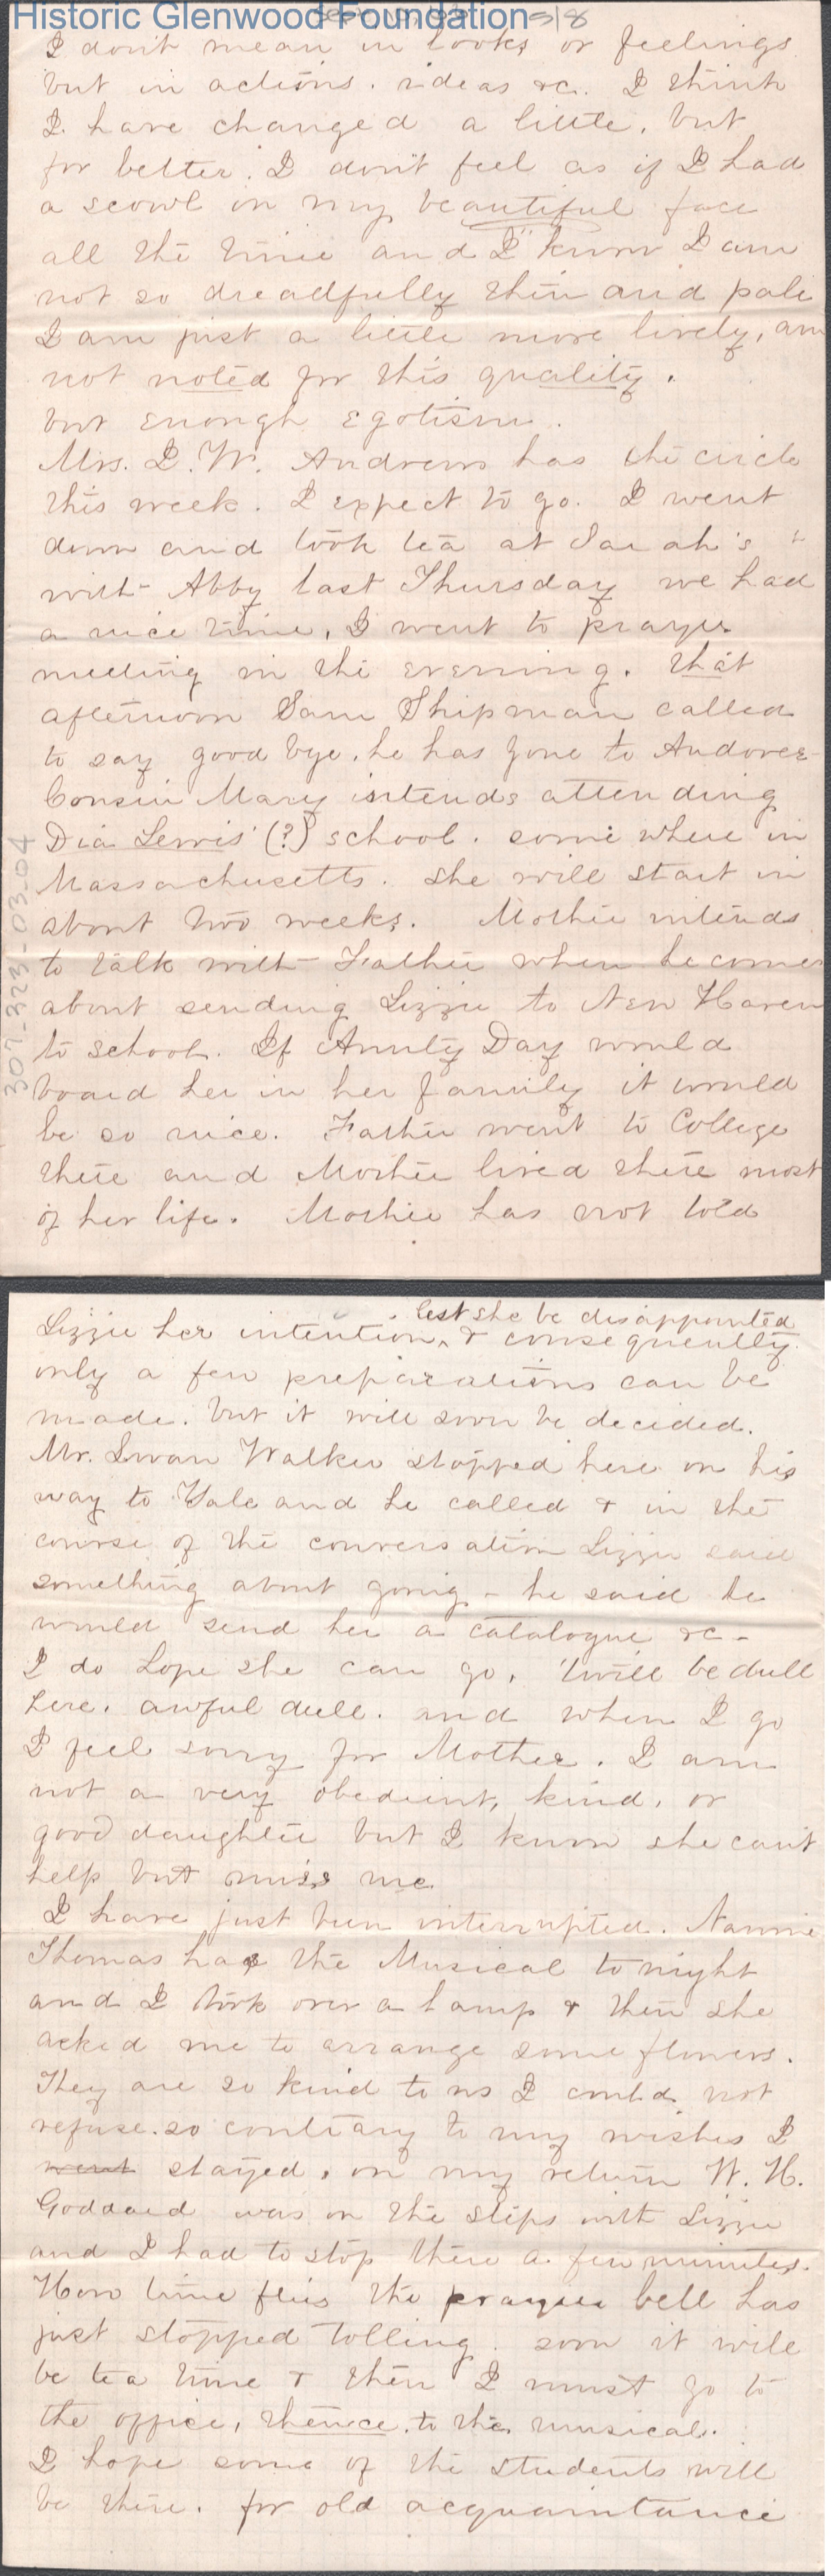 Historic Glenwood Foundation
I don't mean in looks or feelings
but in actions. ideas &c. I think
I have changed a little, but
for better. I don't feel as if I had
a scowl on my beautiful face
all the time and I know I am
not so dreadfully thin and pale
I am just a little more lively, am
not noted for this quality.
but enough egotism.
Mrs. I. W. Andrews has the circle
this week. I expect to go. I went
down and took tea at Sarah's
with Abby last Thursday we had
a nice time, I went to prayer
meeting in the evening. that
afternoon Sam Shipman called
to say good bye. he has gone to Andover
Cousin Mary intends attending
Dia Lewis' (?) school. some where in
Massachusetts. she will start in
about two weeks. Mother intends
to talk with Father when he comes
about sending Lizzie to New Haven
to school. If Aunty Day would
board her in her family it would
be so nice. Father went to College
there and Mother lived there most
of her life. Mother has not told
307-323-03-04
lest she be disappointed
Lizzie her intention ^ & consequently
only a few preparations can be
made. but it will soon be decided.
Mr. Swan Walker stopped here on his
way to Yale and he called & in the
course of the conversation Lizzie said
something about going - he said he
would send her a catalogue &c -
I do hope she can go, 'twill be dull
here. awful dull. and when I go
I feel sorry for Mother. I am
not a very obedient, kind, or
good daughter but I know she can't
help but miss me.
I have just been interrupted. Nannie
Thomas has the Musical to night
and I took over a lamp & then she
asked me to arrange some flowers.
They are so kind to us I could not
refuse. so contrary to my wishes I
went stayed, on my return W. H.
Goddard was on the steps with Lizzie
and I had to stop there a few minutes.
How time flies the prayer bell has
just stopped tolling. soon it will
be tea time & then I must go to
the office, thence, to the musical.
I hope some of the students will
be there. for old acquaintance